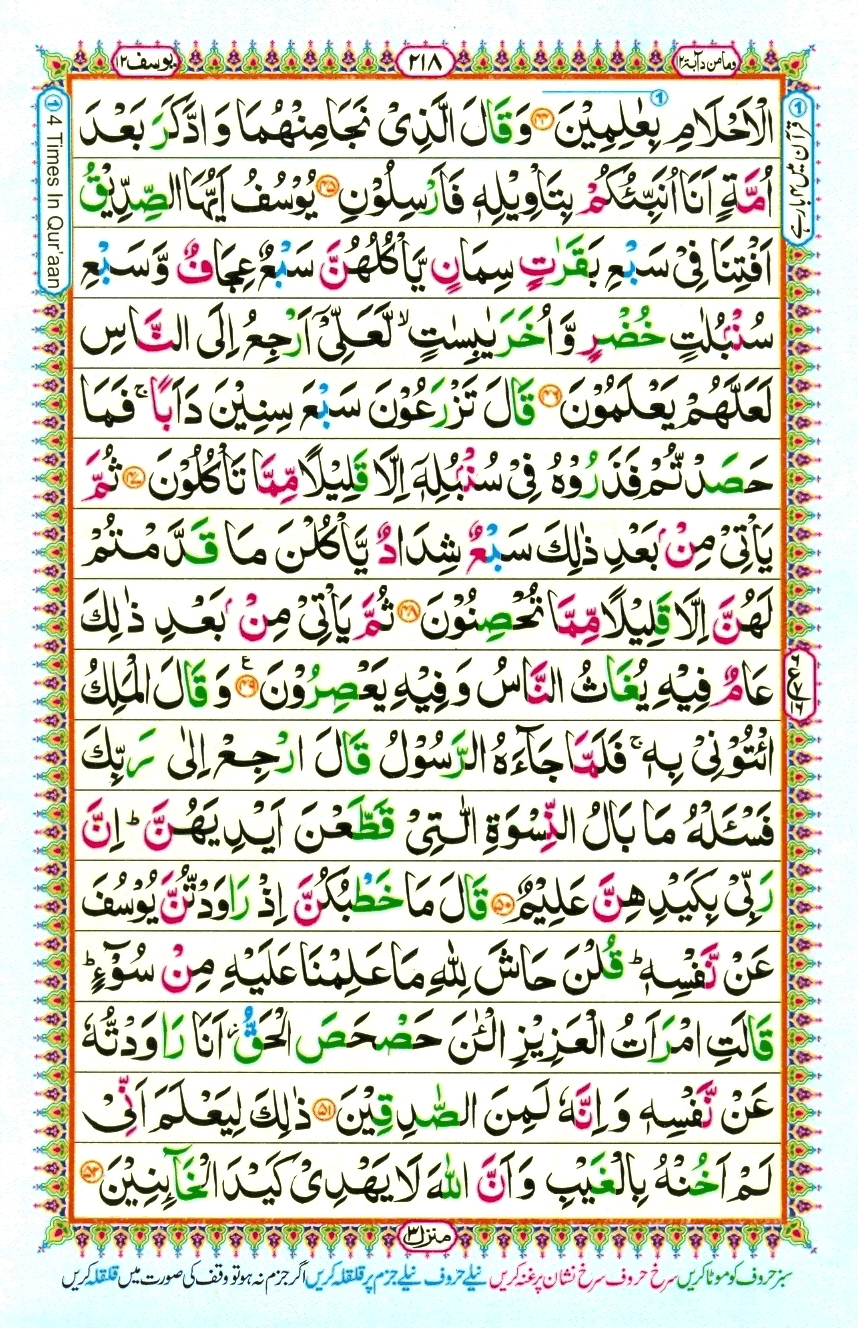 وما من دآبة ١٢
٢١٨
يوسف ١٢
الْاَحْلَامِ بِعٰلِمِيْنَ ﴿۴۴﴾ وَقَالَ الَّذِىْ نَجَا مِنْهُمَا وَادَّكَرَ بَعْدَ
اُمَّةٍ اَنَا اُنَبِّئُكُمْ بِتَاْوِيْلِهٖ فَاَرْسِلُوْنِ ﴿۴۵﴾ يُوْسُفُ اَيُّهَا الصِّدِّيْقُ
اَفْتِنَا فِىْ سَبْعِ بَقَرٰتٍ سِمَانٍ يَّاْكُلُهُنَّ سَبْعٌ عِجَافٌ وَّسَبْعِ
سُنْۢبُلٰتٍ خُضْرٍ وَّاُخَرَ يٰبِسٰتٍ ۙ لَّعَلِّىْۤ اَرْجِعُ اِلَى النَّاسِ
لَعَلَّهُمْ يَعْلَمُوْنَ ﴿۴۶﴾ قَالَ تَزْرَعُوْنَ سَبْعَ سِنِيْنَ دَاَبًا ۚ فَمَا
حَصَدْتُّمْ فَذَرُوْهُ فِىْ سُنْۢبُلِهٖۤ اِلَّا قَلِيْلًا مِّمَّا تَاْكُلُوْنَ ﴿۴۷﴾ ثُمَّ
يَاْتِىْ مِنْۢ بَعْدِ ذٰلِكَ سَبْعٌ شِدَادٌ يَّاْكُلْنَ مَا قَدَّمْتُمْ
لَهُنَّ اِلَّا قَلِيْلًا مِّمَّا تُحْصِنُوْنَ ﴿۴۸﴾ ثُمَّ يَاْتِىْ مِنْۢ بَعْدِ ذٰلِكَ
عَامٌ فِيْهِ يُغَاثُ النَّاسُ وَفِيْهِ يَعْصِرُوْنَ ﴿۴۹﴾ ع وَقَالَ الْمَلِكُ
ائْتُوْنِىْ بِهٖ ۚ فَلَمَّا جَآءَهُ الرَّسُوْلُ قَالَ ارْجِعْ اِلٰى رَبِّكَ
فَسْـَٔلْهُ مَا بَالُ النِّسْوَةِ الّٰتِىْ قَطَّعْنَ اَيْدِيَهُنَّ ؕ اِنَّ
رَبِّىْ بِكَيْدِهِنَّ عَلِيْمٌ ﴿۵۰﴾ قَالَ مَا خَطْبُكُنَّ اِذْ رَاوَدْتُّنَّ يُوْسُفَ
عَنْ نَّفْسِهٖ ؕ قُلْنَ حَاشَ لِلّٰهِ مَا عَلِمْنَا عَلَيْهِ مِنْ سُوْٓءٍ ؕ
قَالَتِ امْرَاَتُ الْعَزِيْزِ الْـٰٔنَ حَصْحَصَ الْحَقُّ ز اَنَا رَاوَدْتُّهٗ
عَنْ نَّفْسِهٖ وَاِنَّهٗ لَمِنَ الصّٰدِقِيْنَ ﴿۵۱﴾ ذٰلِكَ لِيَعْلَمَ اَنِّىْ
لَمْ اَخُنْهُ بِالْغَيْبِ وَاَنَّ اللّٰهَ لَا يَهْدِىْ كَيْدَ الْخَآئِنِيْنَ ﴿۵۲﴾
قرآن میں ۴ بار ہے
4 Times In Qur'aan
منزل ۳
سبز حروف کو موٹا کریں سرخ حروف سرخ نشان پر غنہ کریں نیلے حروف نیلے جزم پر قلقلہ کریں اگر جزم نہ ہو تو وقف کی صورت میں قلقلہ کریں